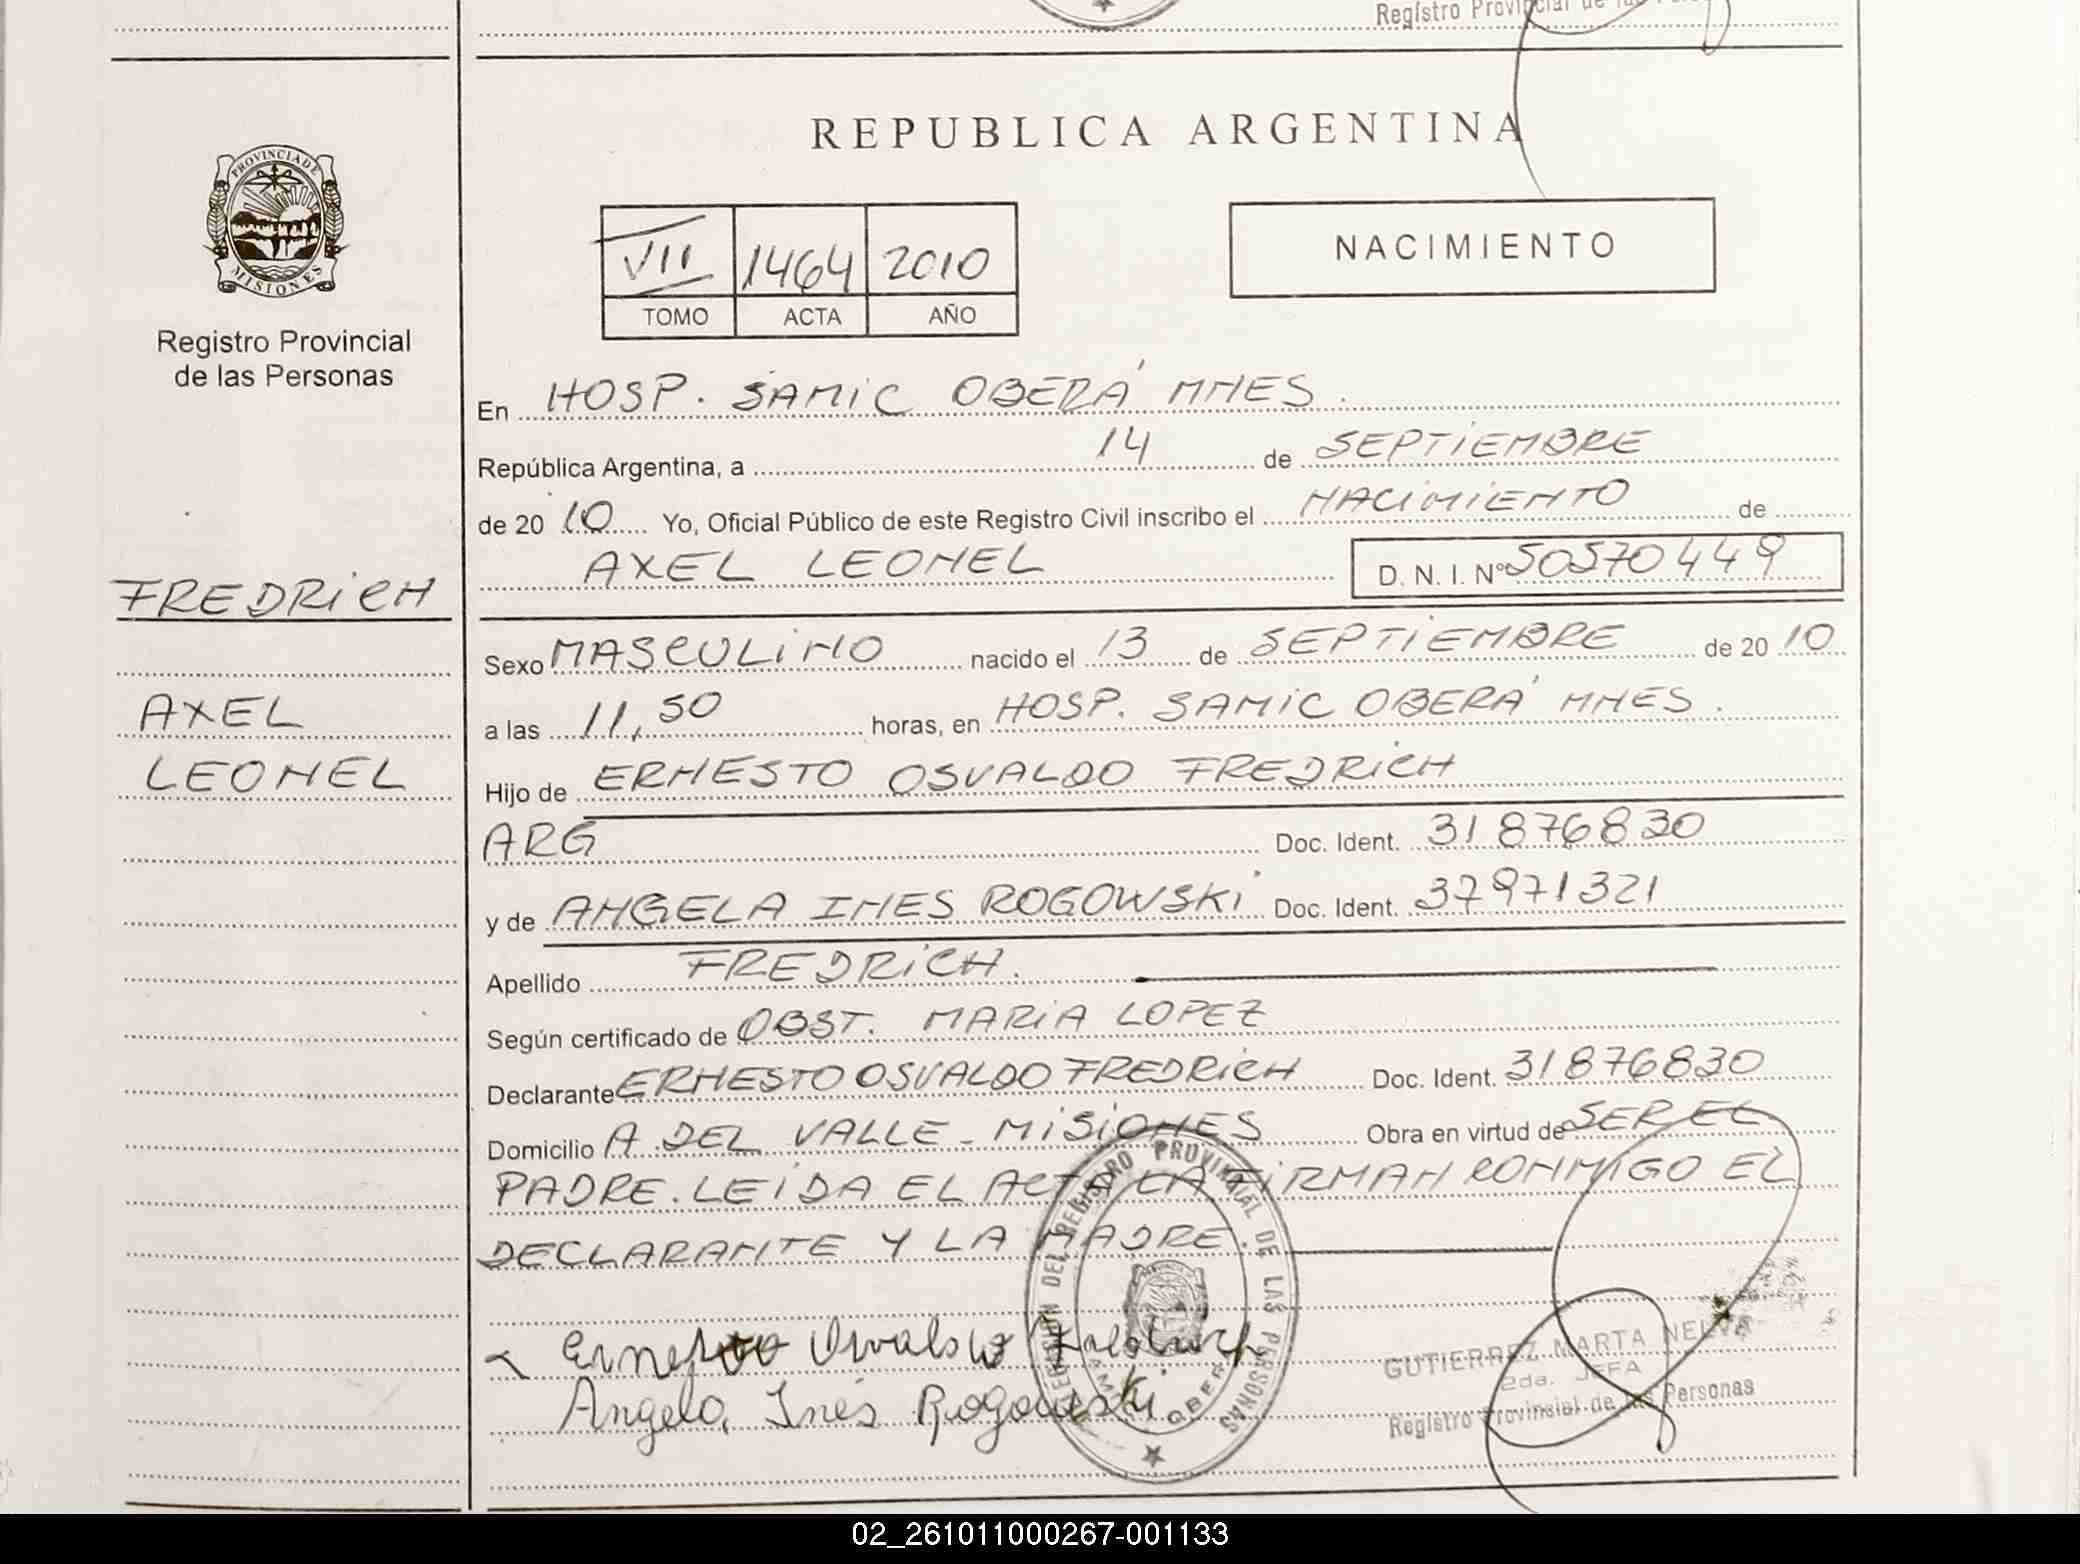 Registro Provincial de las Personas
REPUBLICA ARGENTINA
PROVINCIA DE
MISIONES
Registro Provincial
de las Personas
VII 1464 2010
TOMO ACTA AÑO
NACIMIENTO
En HOSP. SAMIC OBERÁ MNES.
República Argentina, a 14 de SEPTIEMBRE
de 20 10 Yo, Oficial Público de este Registro Civil inscribo el NACIMIENTO de
AXEL LEONEL D. N. I. Nº 50570449
FREDRICH
AXEL
LEONEL
Sexo MASCULINO nacido el 13 de SEPTIEMBRE de 20 10
a las 11,50 horas, en HOSP. SAMIC OBERÁ MNES.
Hijo de ERNESTO OSVALDO FREDRICH
ARG Doc. Ident. 31876830
y de ANGELA INES ROGOWSKI Doc. Ident. 37971321
Apellido FREDRICH.
Según certificado de OBST. MARIA LOPEZ
Declarante ERNESTO OSVALDO FREDRICH Doc. Ident. 31876830
Domicilio A. DEL VALLE - MISIONES Obra en virtud de SER EL
PADRE. LEIDA EL ACTA LA FIRMAN CONMIGO EL
DECLARANTE Y LA MADRE.
DEL REGISTRO PROVINCIAL DE LAS PERSONAS
OBERA
Ernesto Osvaldo Fredrich
Angela Inés Rogowski
GUTIERREZ MARTA NELVI
2da. JEFA
Registro Provincial de las Personas
02_261011000267-001133